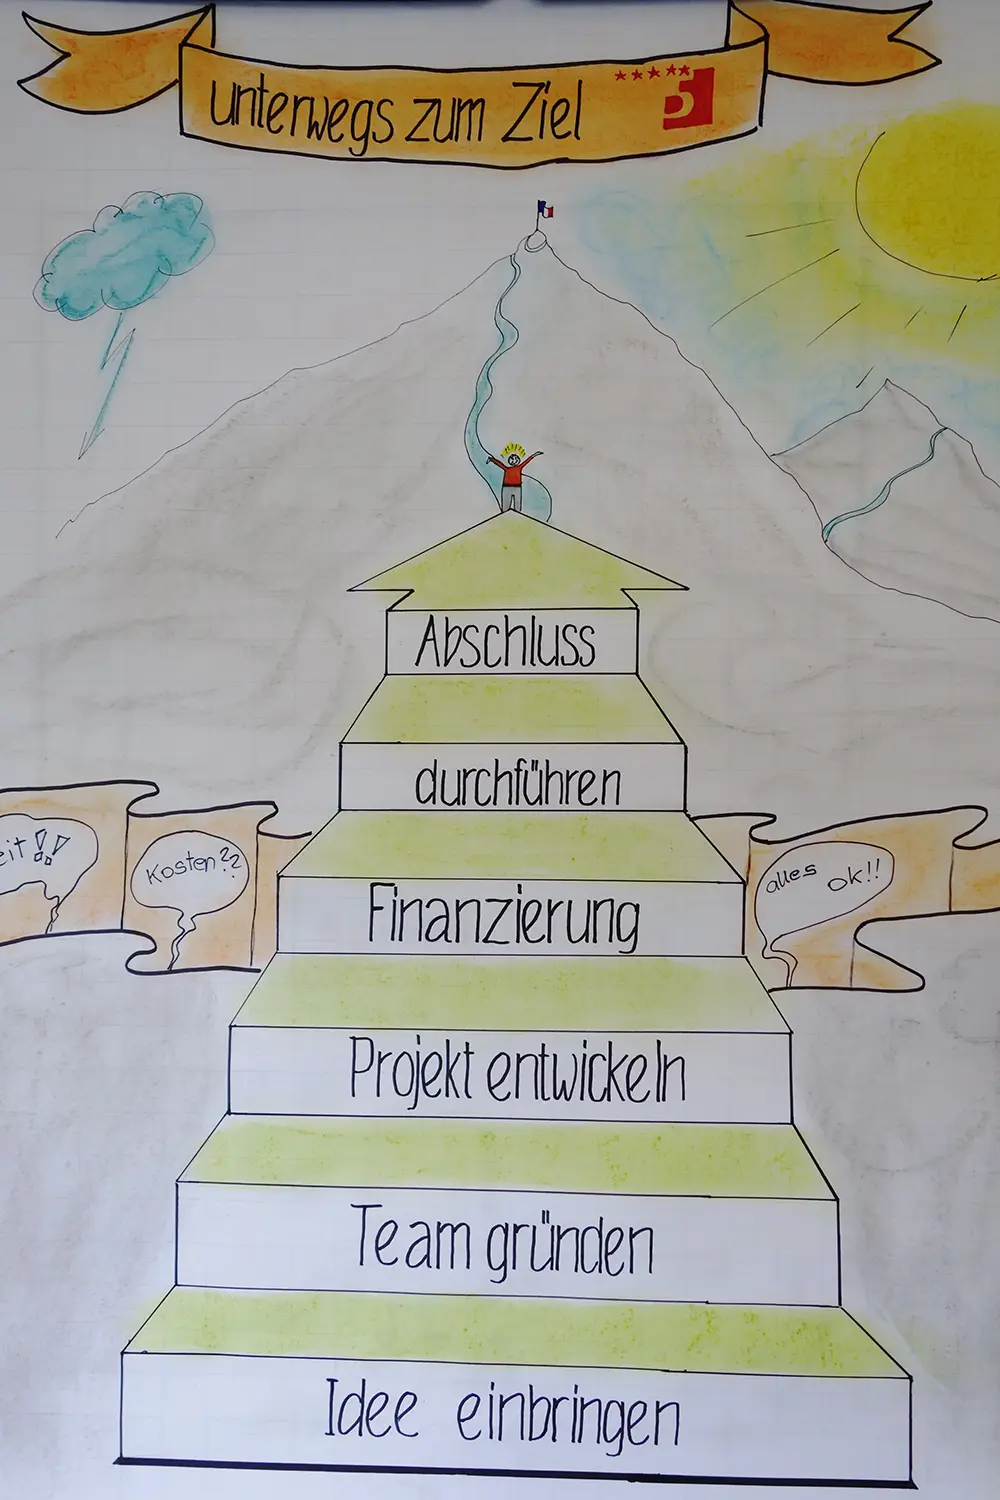 unterwegs zum Ziel
5
Abschluss
durchführen
Kosten??
alles ok!!
Finanzierung
Projekt entwickeln
Team gründen
Idee einbringen